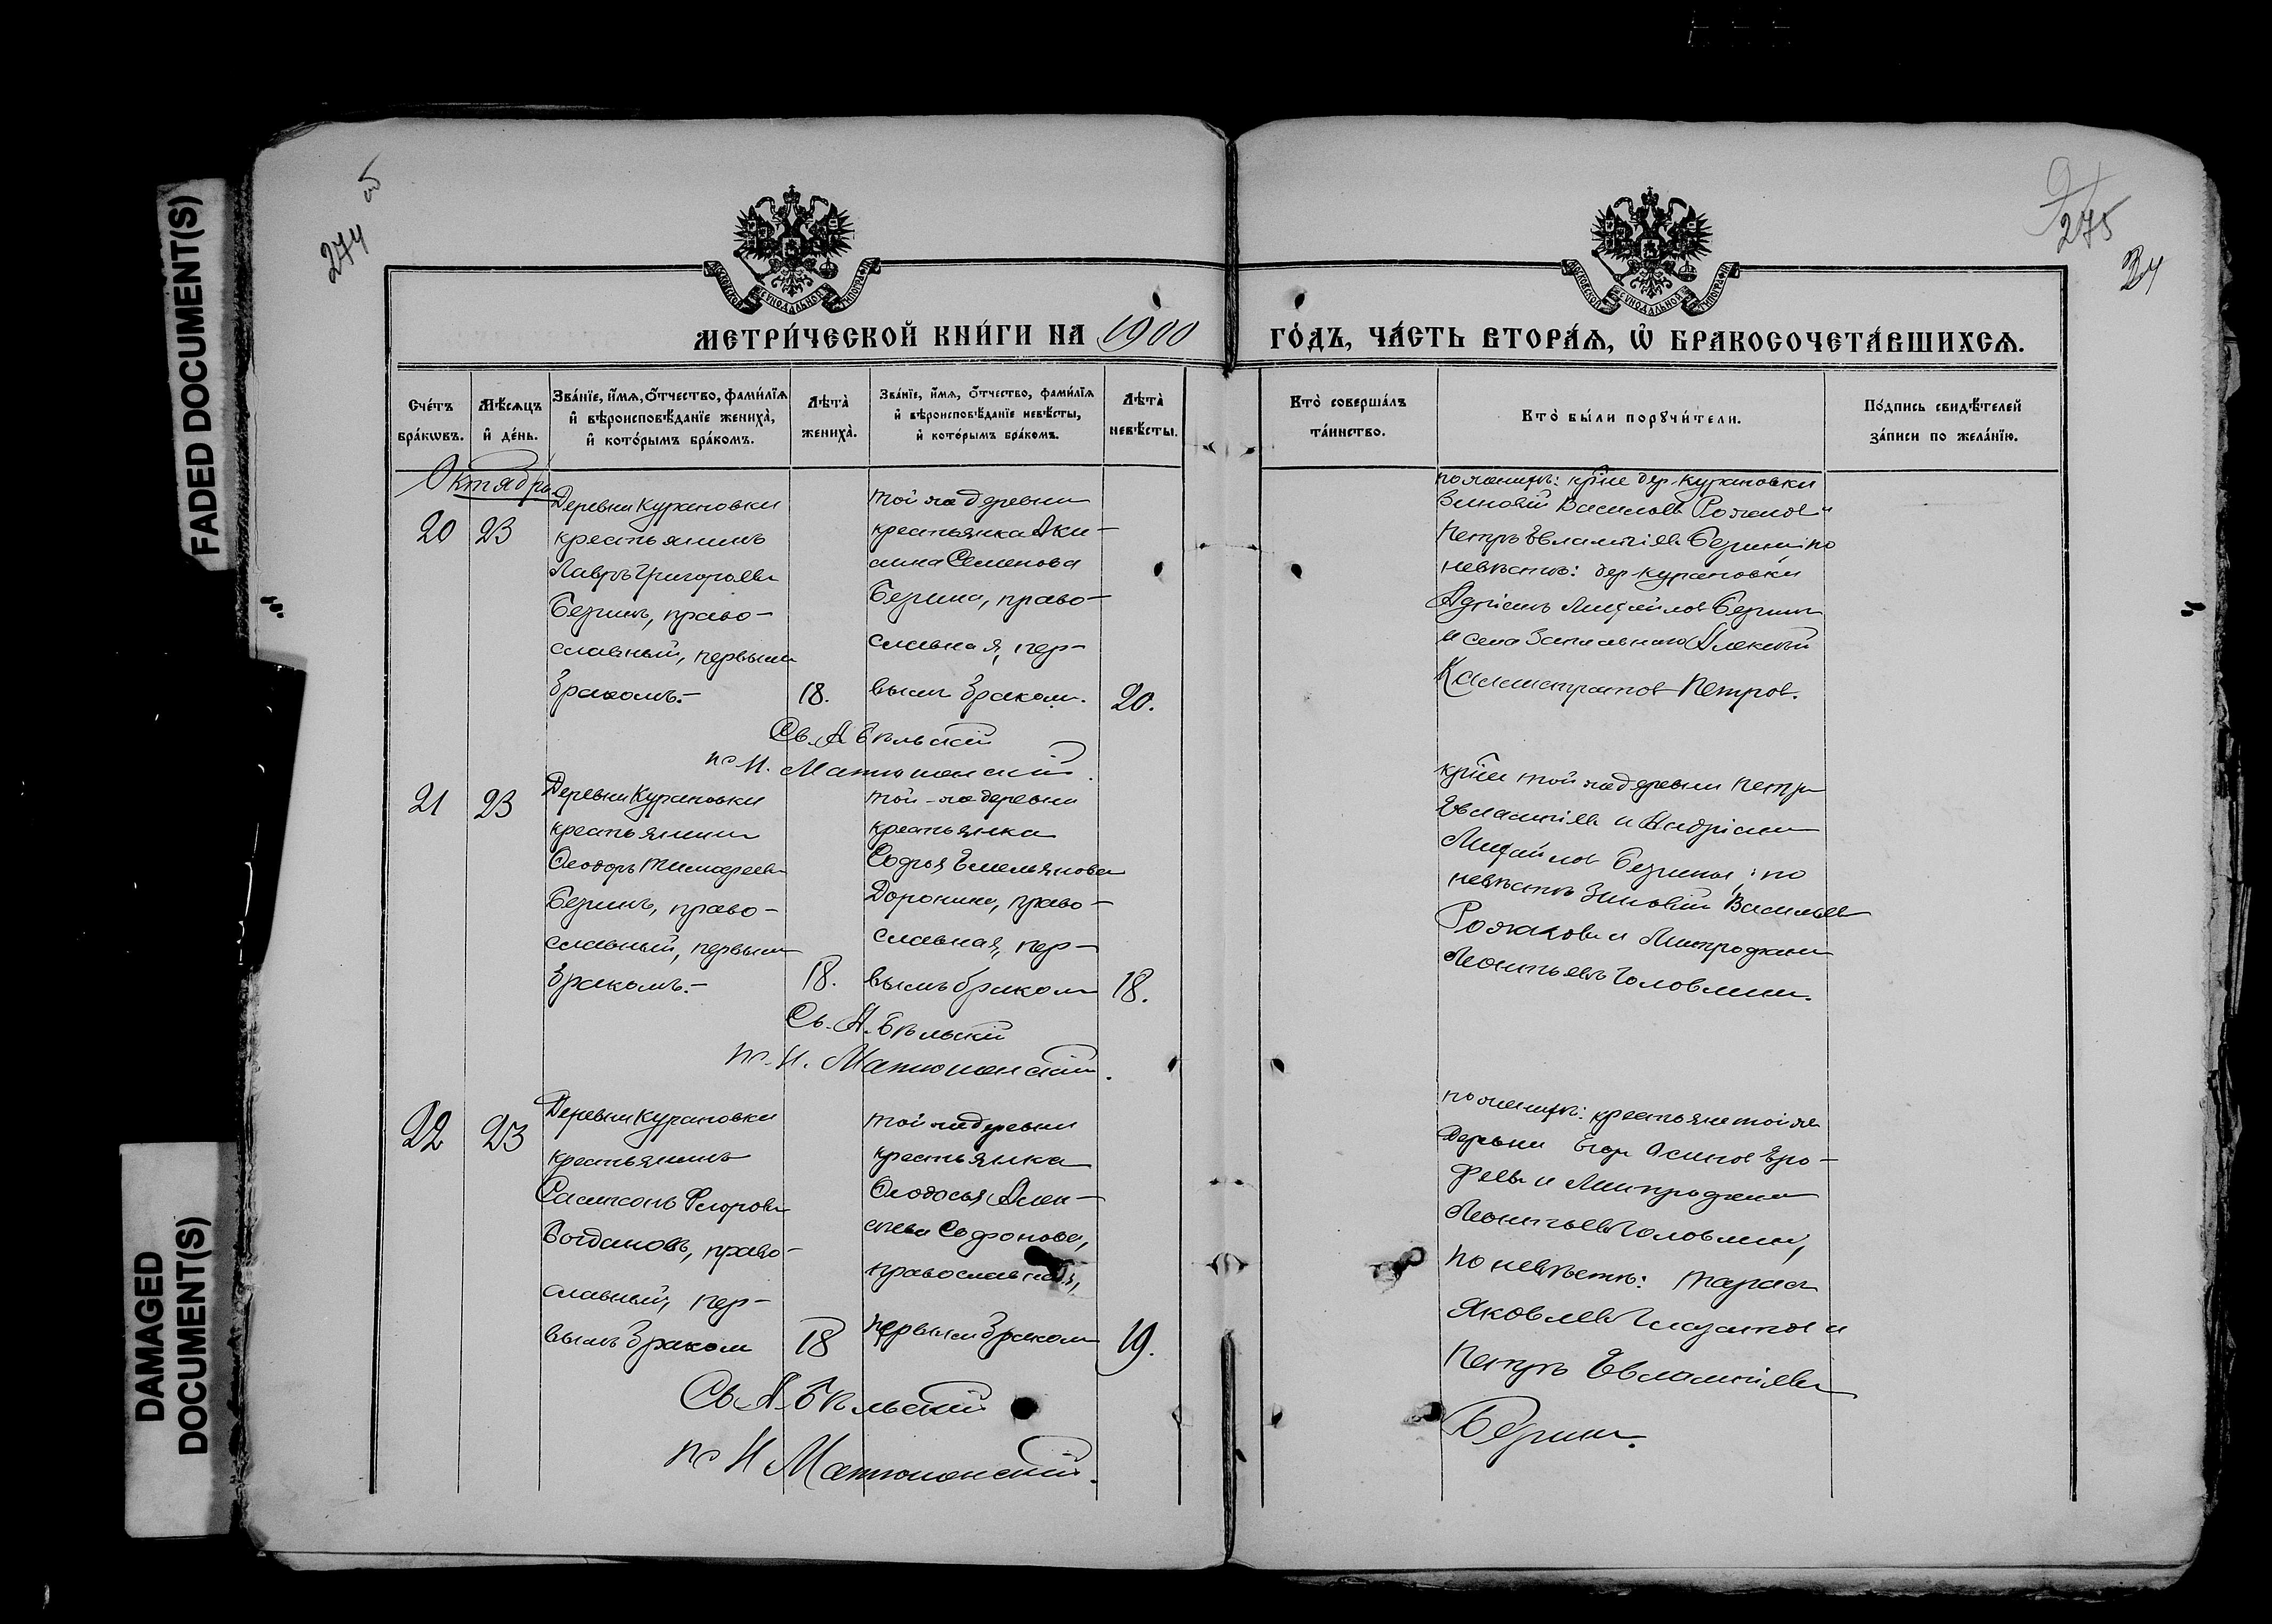 FADED DOCUMENT(S)
DAMAGED
DOCUMENT(S)
274
275
34
МЕТРИ́ЧЕСКОЙ КНИ́ГИ НА 1900
ГО́ДЪ, ЧА́СТЬ ВТОРА́Ѧ, Ѡ҆ БРАКОСОЧЕТА́ВШИХСѦ.
Сче́тъ
бра́кѡвъ.
Мѣ́сѧцъ
и҆ де́нь.
Зва́нїе, и҆́мѧ, ѻ҆́тчество, фами́лїѧ
и҆ вѣроисповѣ́данїе жениха̀,
и҆ кото́рымъ бра́комъ.
Лѣ́та̀
жениха̀.
Зва́нїе, и҆́мѧ, ѻ҆́тчество, фами́лїѧ
и҆ вѣроисповѣ́данїе невѣ́сты,
и҆ кото́рымъ бра́комъ.
Лѣ́та̀
невѣ́сты.
Кто̀ соверша́лъ
та́инство.
Кто̀ бы́ли порꙋчи́тели.
По́дпись свидѣ́телей
за́писи по жела́нїю.
Октябрь
20
23
Деревни Курановки
крестьянинъ
Лавръ Григорьевъ
Безинъ, право-
славный, первымъ
бракомъ.-
18.
той же деревни
крестьянка Аки-
лина Семенова
Безина, право-
славная, пер-
вымъ бракомъ.
20.
по женихѣ: кр͠не дер. Курановки
Зиновій Васильевъ и
Петръ Евлампіевъ Безинъ; по
невѣстѣ: дер. Курановки
Адріанъ Михайловъ Безинъ
и села Алексѣй
Каллистратовъ Петровъ.
Св. А. Бѣльскій
пс. И.
21
23
Деревни Курановки
крестьянинъ
Ѳеодоръ Тимофеевъ
Безинъ, право-
славный, первымъ
бракомъ.-
18.
той-же деревни
крестьянка
Софья Емельянова
Доронина, право-
славная, пер-
вымъ бракомъ
18.
кр͠не той же деревни Петръ
Евлампіевъ и Андріанъ
Михайловъ Безины; по
невѣстѣ Зиновій Васильевъ
и Митрофанъ
Леонтьевъ Головлинъ.
Св. А. Бѣльскій
пс. И.
22
23
Деревни Курановки
крестьянинъ
Сампсонъ Флоровъ
Богдановъ, право-
славный, пер-
вымъ бракомъ
18
той же деревни
крестьянка
Ѳеодосья Алек-
сѣева Софонова,
православная,
первымъ бракомъ
19.
по женихѣ: крестьяне той же
деревни Егоръ Осиповъ Еро-
феевъ и Митрофанъ
Леонтьевъ Головлинъ,
по невѣстѣ: Тарасъ
Яковлевъ и
Петръ Евлампіевъ
Безинъ.
Св. А. Бѣльскій
пс. И.